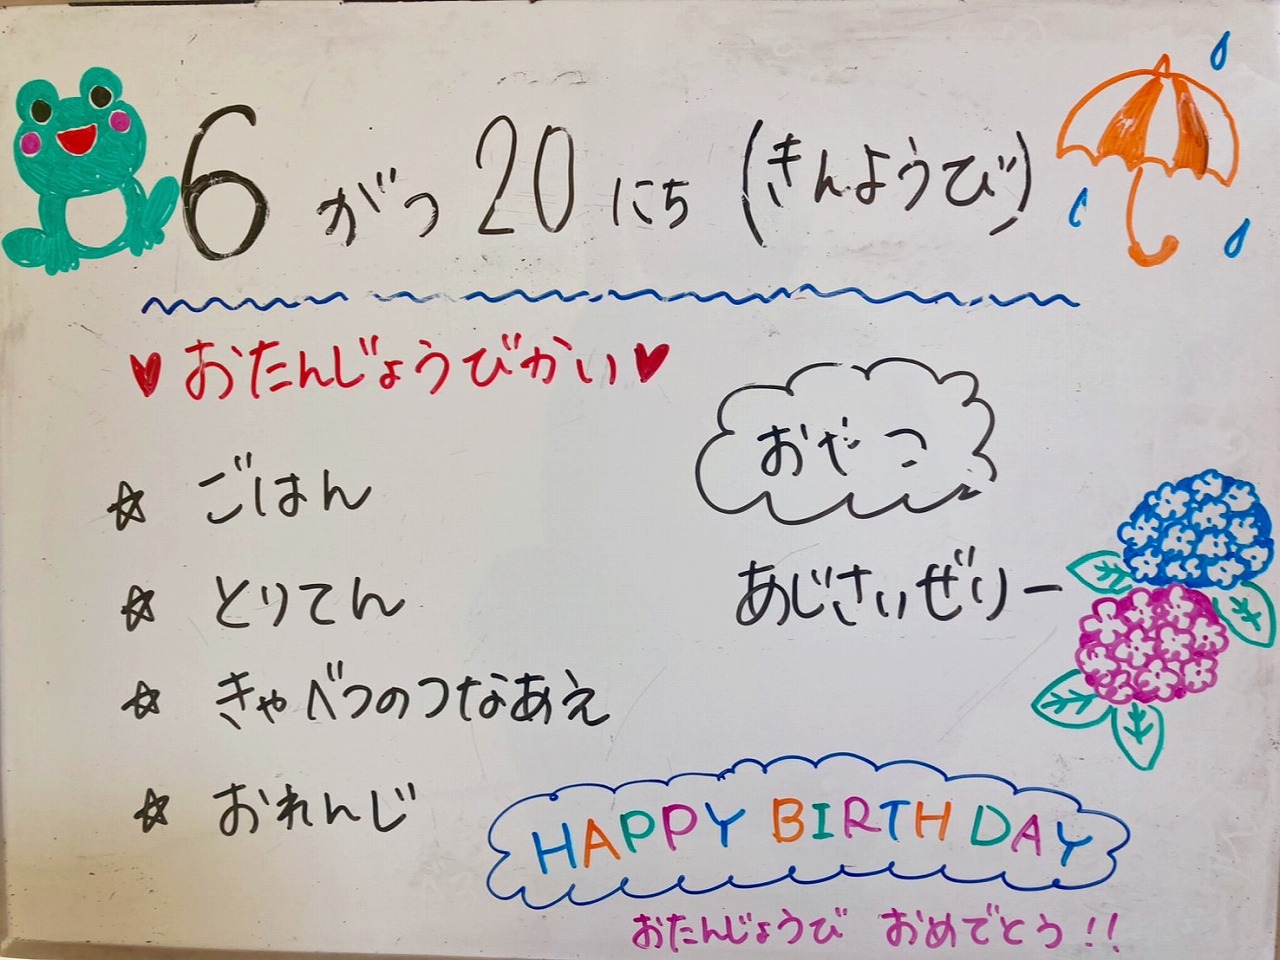 6がつ20にち(きんようび)
♥おたんじょうびかい♥
☆ ごはん
☆ とりてん
☆ きゃべつのつなあえ
☆ おれんじ
おやつ
あじさいぜりー
HAPPY BIRTHDAY
おたんじょうび おめでとう!!